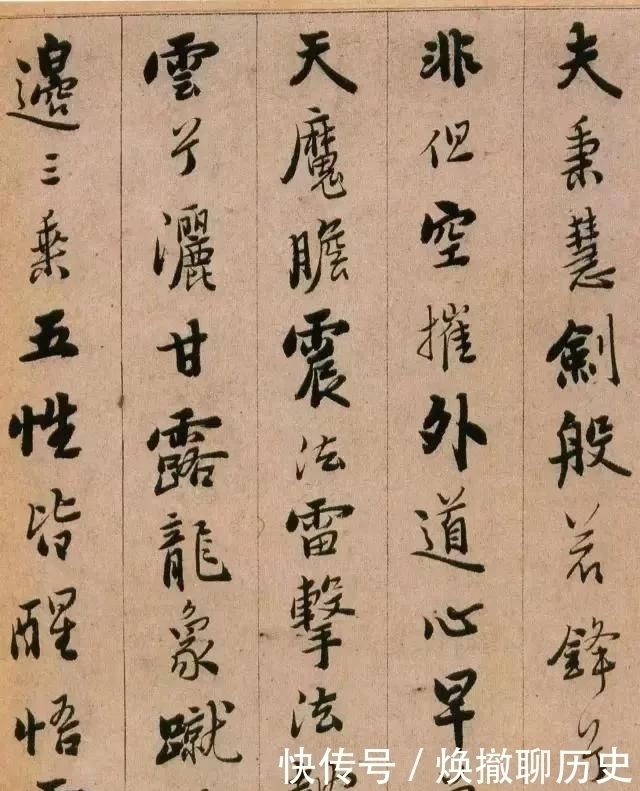 夫秉慧劍般若鋒兮
非但空摧外道心早
天魔膽震法雷擊法
雲兮灑甘露龍象蹴
邊三乘五性皆醒悟
快传号 / 焕撤聊历史